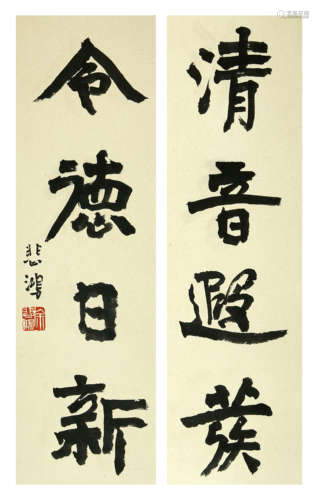 清音遐蔟
令德日新
悲鴻